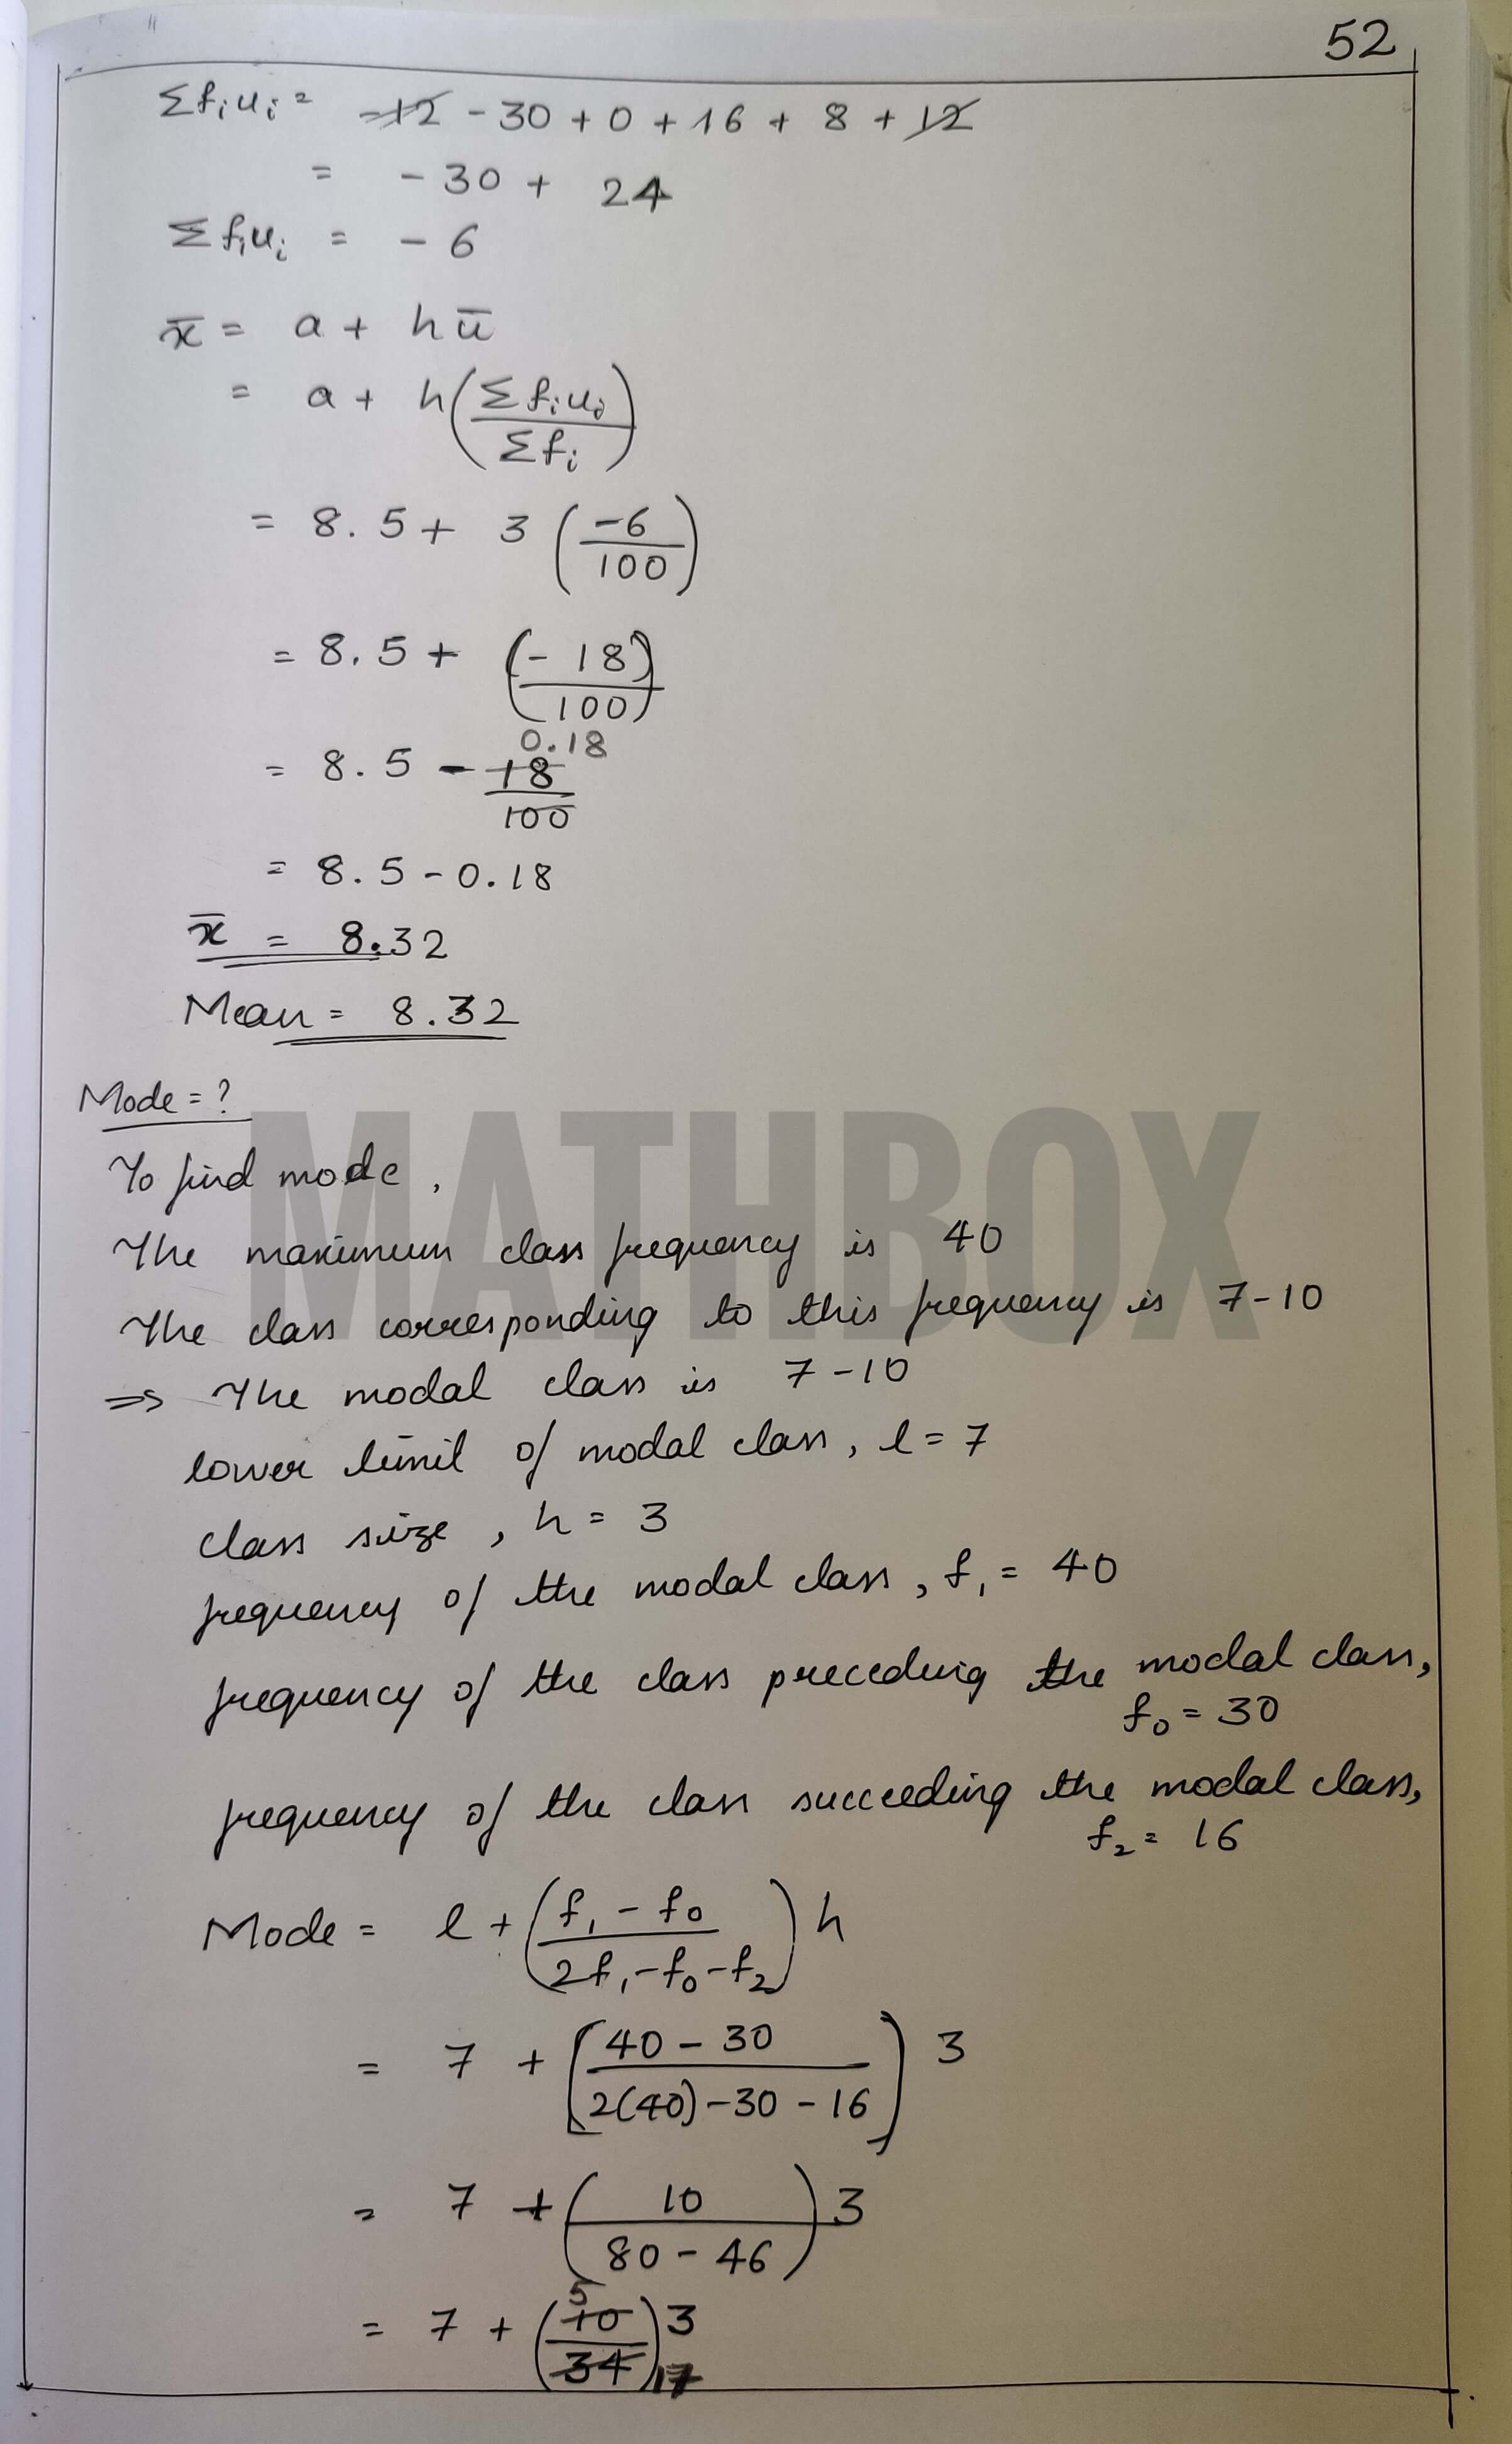 52
Σfiui = -12 - 30 + 0 + 16 + 8 + 12
= - 30 + 24
Σfiui = - 6
x̄ = a + hū
= a + h(Σfiui / Σfi)
= 8.5 + 3 (-6 / 100)
= 8.5 + (-18 / 100)
0.18
= 8.5 - 18 / 100
= 8.5 - 0.18
x̄ = 8.32
Mean = 8.32
Mode = ?
MATHBOX
To find mode,
The maximum class frequency is 40
The class corresponding to this frequency is 7-10
⇒ The modal class is 7-10
lower limit of modal class, l = 7
class size, h = 3
frequency of the modal class, f₁ = 40
frequency of the class preceding the modal class,
f₀ = 30
frequency of the class succeeding the modal class,
f₂ = 16
Mode = l + (f₁ - f₀ / 2f₁ - f₀ - f₂) h
= 7 + [40 - 30 / 2(40) - 30 - 16] 3
= 7 + (10 / 80 - 46) 3
5
= 7 + (10 / 34) 3
17